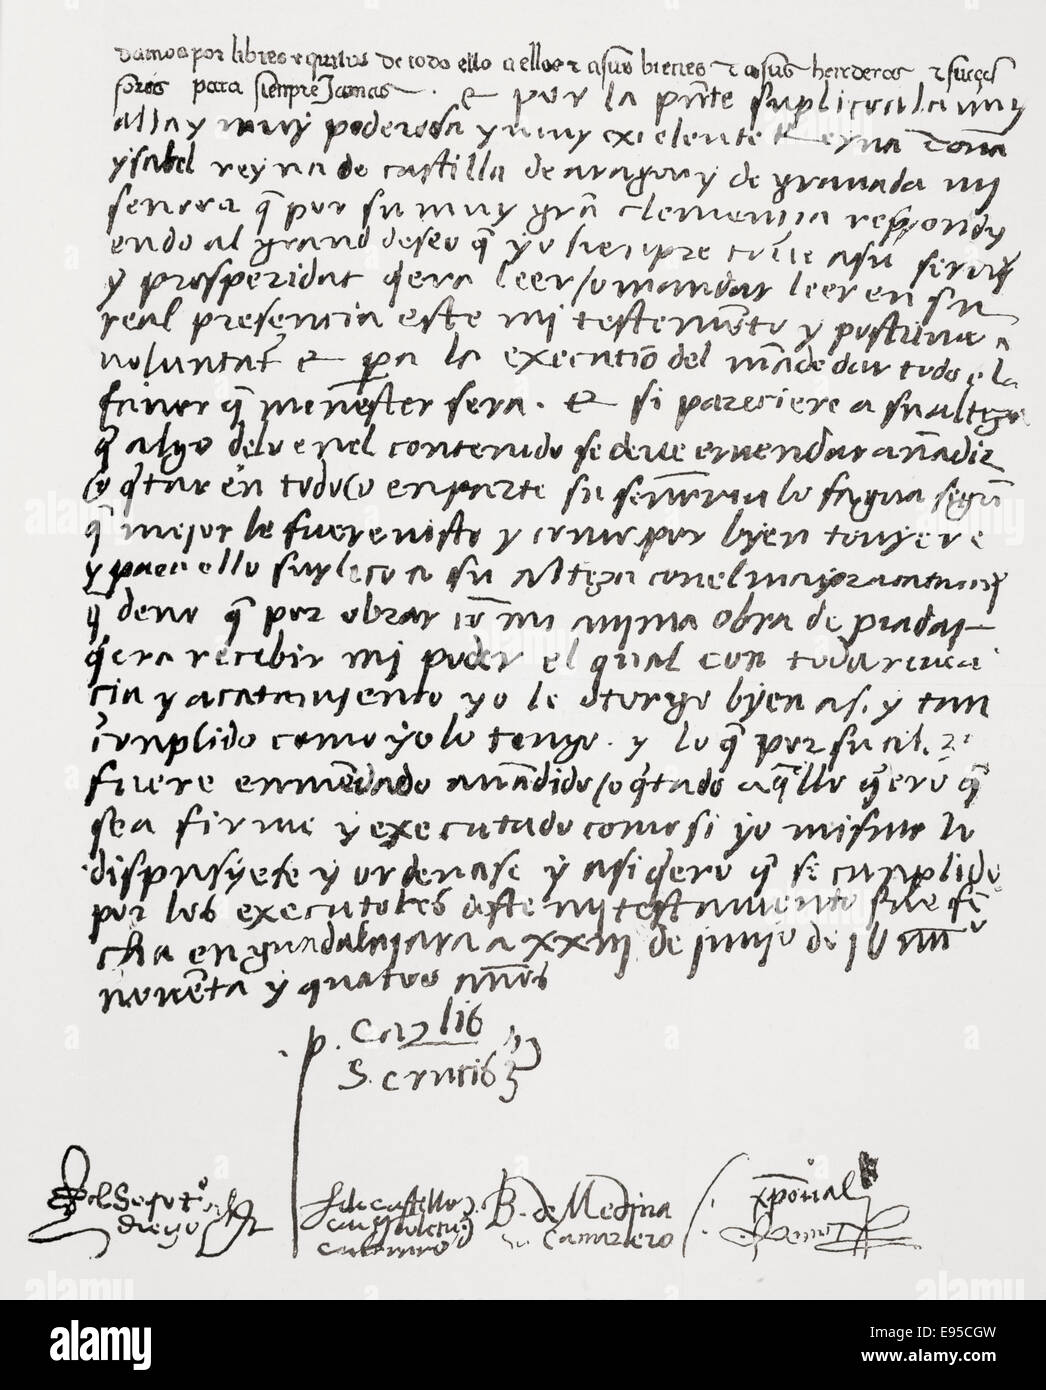 damos por libres e quitos de todo ello a ellos e a sus bienes e a sus herederos e suçes
sores para sienpre Jamas. e por la pnte suplico a la muy
alta y muy poderosa y muy excelente Reyna doña
ysabel reyna de castilla de aragon y de granada mi
señora q por su muy gra clemencia respondy
endo al grand deseo q yo sienpre tuve a su servi
y prosperidat qera leer/o mandar leer en su
real presencia este mi testemento y postrimera
voluntat e pa la execucio del mãde dar todo el
favor q menester sera. e si pareciere a su alteza
q algo dello en el contenido se deve emendar añadir
/o qtar en todo/o en parte su señoria lo faga segu
q mejor le fuere visto y como por byen tovyere
y para ello suplico a su alteza con el mayor acatami
q devo q por obrar co mi anima obra de piadat
qera recebir mi poder el qual con toda reveren
cia y acatamyento yo le otorgo byen asi y tan
cunplido como yo lo tengo. y lo q por su al.
fuere enmendado añadido/o qtado aqllo qero q
sea firme y executado como si yo mismo lo
dispusyese y ordenase y asi qero q se cunplido
por los executores deste mi testamento fue fe
cha en guadalajara a xxiij de junyo de
noventa y quatro años
p. Carlis
S. crucis
diego
B. de Medina
Camarero
xpoual